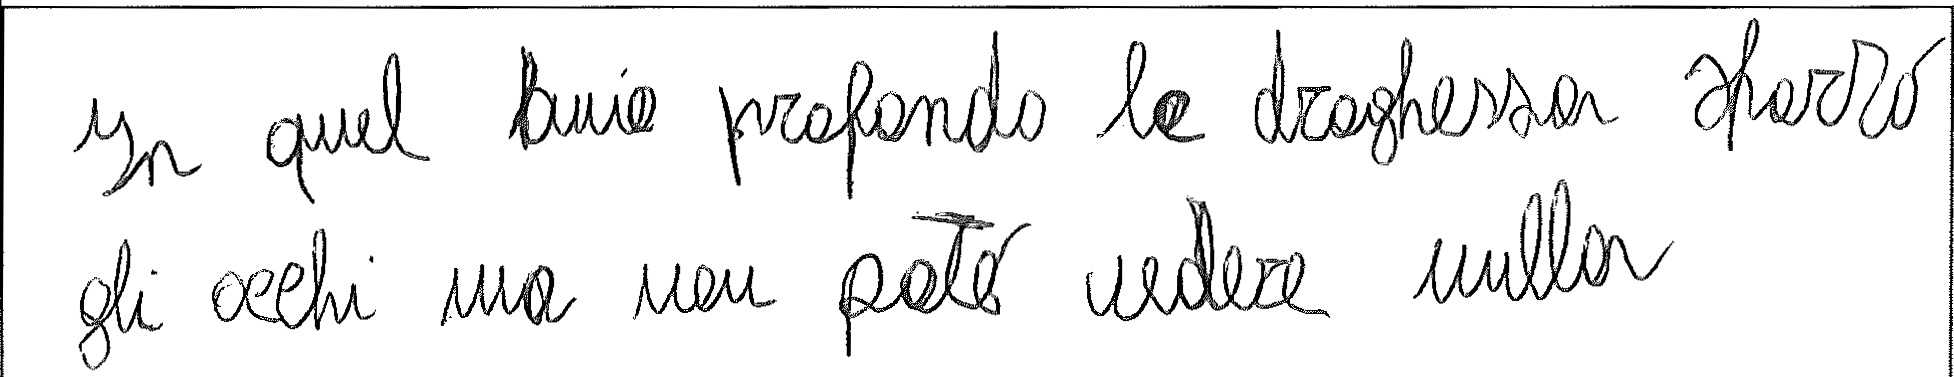 In quel buio profondo la draghessa sparzó
gli occhi ma non poté vedere nulla